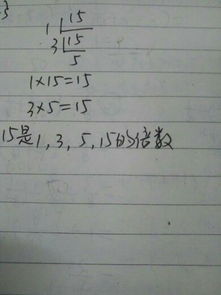 1 15
3 15
5
1×15=15
3×5=15
15是1,3,5,15的倍数